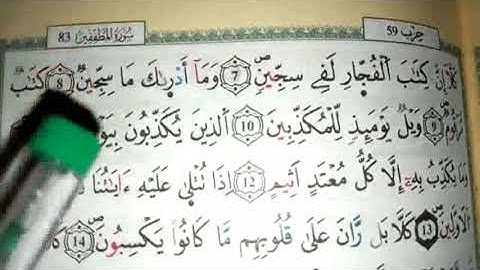 حزب 59 سورة المطففين 83
كَلَّا إِنَّ كِتَٰبَ ٱلْفُجَّارِ لَفِے سِجِّينٍ 7 وَمَآ أَدْر۪ىٰكَ مَا سِجِّينٌ 8 كِتَٰبٌ
مَّرْقُومٌ 9 وَيْلٌ يَوْمَئِذٍ لِّلْمُكَذِّبِينَ 10 ٱلذِينَ يُكَذِّبُونَ
وَمَا يُكَذِّبُ بِهِۦٓ إِلَّا كُلُّ مُعْتَدٍ أَثِيمٍ 12 إِذَا تُتْلَىٰ عَلَيْهِ ءَايَٰتُنَا
ٱلْأَوَّلِينَ 13 كَلَّا بَل رَّانَ عَلَىٰ قُلُوبِهِم مَّا كَانُوا۟ يَكْسِبُونَ 14